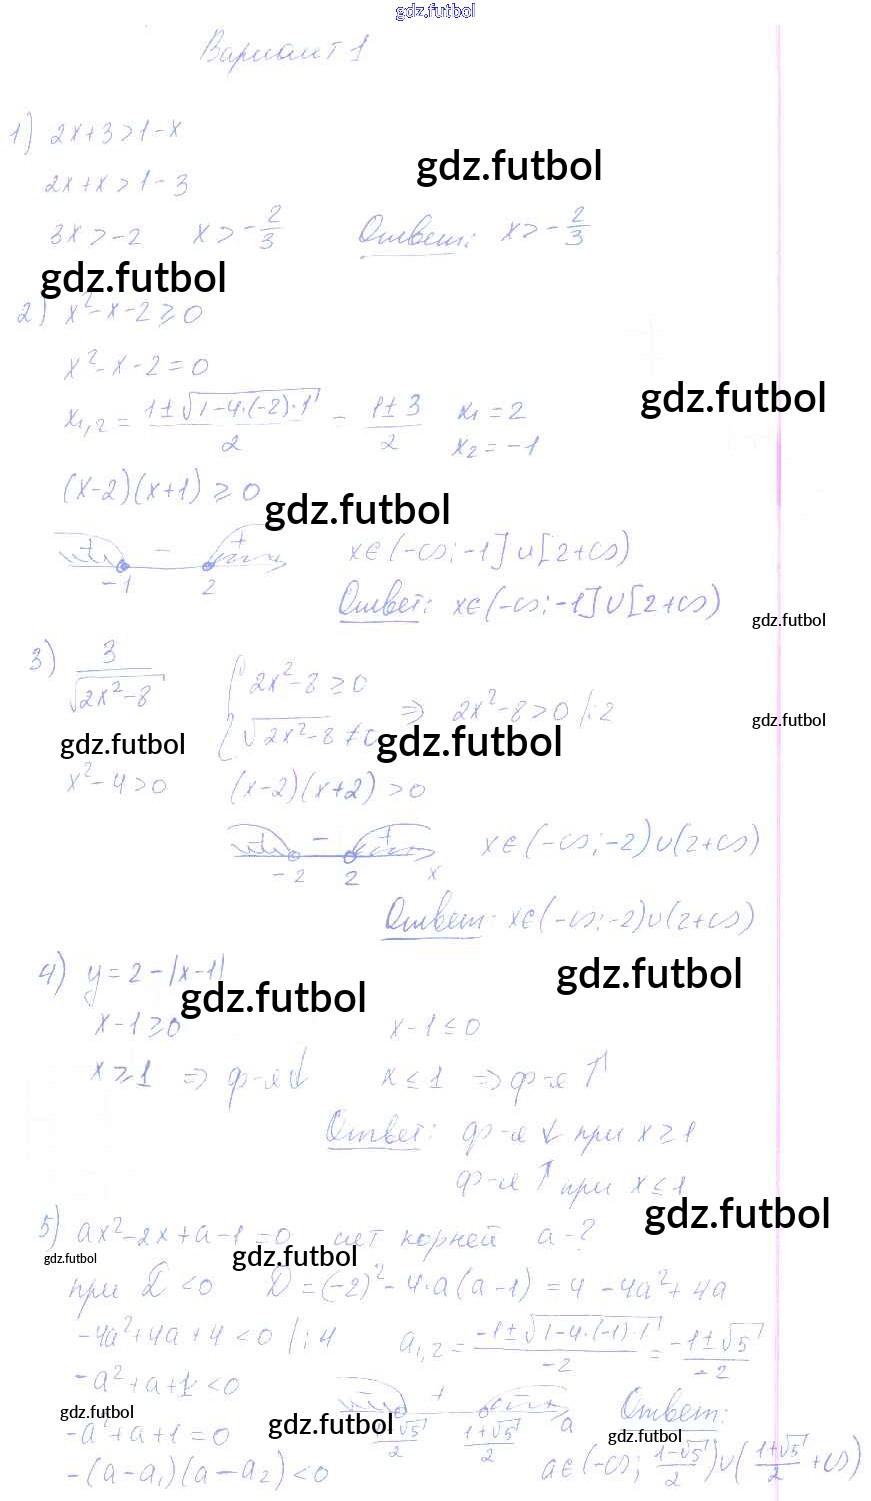 gdz.futbol
Вариант 1
1) 2x+3>1-x
gdz.futbol
2x+x>1-3
3x>-2 x>-2/3 Ответ: x>-2/3
gdz.futbol
2) x²-x-2≥0
x²-x-2=0
gdz.futbol
x₁,₂ = (1±√(1-4·(-2)·1))/2 = (1±3)/2 x₁=2
x₂=-1
(x-2)(x+1)≥0
gdz.futbol
+ - + x∈(-∞;-1]∪[2+∞)
-1 2
Ответ: x∈(-∞;-1]∪[2+∞)
gdz.futbol
3) 3/√(2x²-8) { 2x²-8≥0
√(2x²-8)≠0 ⇒ 2x²-8>0 /:2
gdz.futbol
gdz.futbol gdz.futbol
x²-4>0 (x-2)(x+2)>0
+ - + x∈(-∞;-2)∪(2+∞)
-2 2 x
Ответ: x∈(-∞;-2)∪(2+∞)
4) y=2-|x-1|
gdz.futbol
gdz.futbol
x-1≥0 x-1≤0
x≥1 ⇒ ф-я↓ x≤1 ⇒ ф-я↑
Ответ: ф-я ↓ при x≥1
ф-я ↑ при x≤1
gdz.futbol
5) ax²-2x+a-1=0 нет корней a-?
gdz.futbol gdz.futbol
при D<0 D=(-2)²-4·a(a-1)=4-4a²+4a
-4a²+4a+4<0 /:4 a₁,₂ = (-1±√(1-4·(-1)·1))/-2 = (-1±√5)/-2
-a²+a+1<0
+ a Ответ:
gdz.futbol
-a²+a+1=0 (1-√5)/2 (1+√5)/2
gdz.futbol gdz.futbol
-(a-a₁)(a-a₂)<0 a∈(-∞;(1-√5)/2)∪((1+√5)/2+∞)